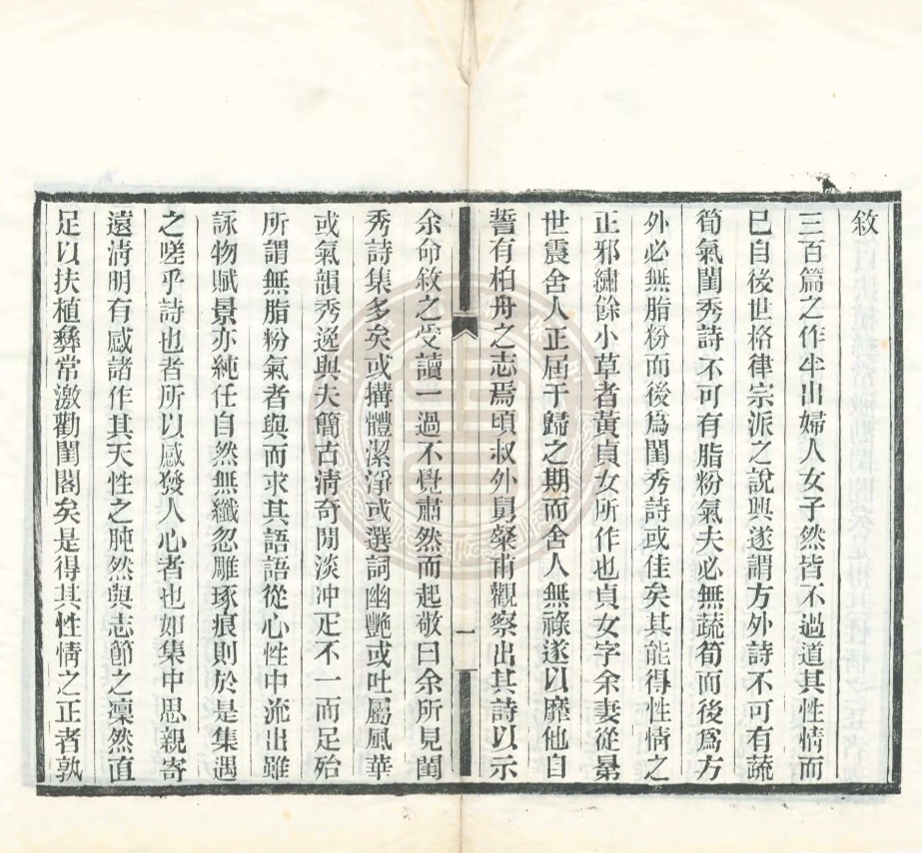 敘
三百篇之作半出婦人女子然皆不過道其性情而
已自後世格律宗派之說興遂謂方外詩不可有蔬
筍氣閨秀詩不可有脂粉氣夫必無蔬筍而後為方
外必無脂粉而後為閨秀詩或佳矣其能得性情之
正邪繡餘小草者黃貞女所作也貞女字余妻從晜
世震舍人正屆于歸之期而舍人無祿遂以靡他自
誓有柏舟之志焉頃叔外舅粲甫觀察出其詩以示
一
余命敘之受讀一過不覺肅然而起敬曰余所見閨
秀詩集多矣或搆體潔淨或選詞幽艷或吐屬風華
或氣韻秀逸與夫簡古清奇閒淡冲疋不一而足殆
所謂無脂粉氣者與而求其語語從心性中流出雖
詠物賦景亦純任自然無纖忽雕琢痕則於是集遇
之嗟乎詩也者所以感發人心者也如集中思親寄
遠清明有感諸作其天性之肫然與志節之凜然直
足以扶植彝常激勸閨閣矣是得其性情之正者孰